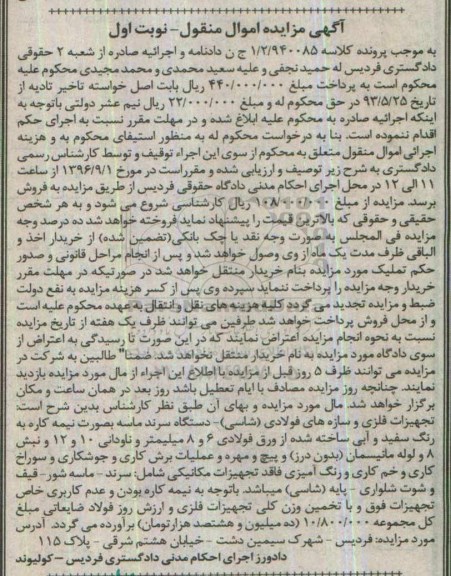 آگهی مزایده اموال منقول - نوبت اول
به موجب پرونده کلاسه ۱/۲/۹۴۰۰۸۵ ج ن دادنامه و اجرائیه صادره از شعبه ۲ حقوقی
دادگستری فردیس له حمید نجفی و علیه سعید محمدی و محمد مجیدی محکوم علیه
محکوم است به پرداخت مبلغ ۴۴۰/۰۰۰/۰۰۰ ریال بابت اصل خواسته تاخیر تادیه از
تاریخ ۹۳/۵/۲۵ در حق محکوم له و مبلغ ۲۲/۰۰۰/۰۰۰ ریال نیم عشر دولتی باتوجه به
اینکه اجرائیه صادره به محکوم علیه ابلاغ شده و در مهلت مقرر نسبت به اجرای حکم
اقدام ننموده است. بنا به درخواست محکوم له به منظور استیفای محکوم به و هزینه
اجرائی اموال منقول متعلق به محکوم از سوی این اجراء توقیف و توسط کارشناس رسمی
دادگستری به شرح زیر توصیف و ارزیابی شده و مقرراست در مورخ ۱۳۹۶/۹/۱ از ساعت
۱۱ الی ۱۲ در محل اجرای احکام مدنی دادگاه حقوقی فردیس از طریق مزایده به فروش
برسد. مزایده از مبلغ ۱۰۸/۰۰۰/۰۰۰ ریال کارشناسی شروع می شود و به هر شخص
حقیقی و حقوقی که بالاترین قیمت را پیشنهاد نماید فروخته خواهد شد ده درصد وجه
مزایده فی المجلس به صورت وجه نقد یا چک بانکی(تضمین شده) از خریدار اخذ و
الباقی ظرف مدت یک ماه از وی وصول خواهد شد و پس از انجام مراحل قانونی و صدور
حکم تملیک مورد مزایده بنام خریدار منتقل خواهد شد در صورتیکه در مهلت مقرر
خریدار وجه مزایده را پرداخت ننماید سپرده وی پس از کسر هزینه مزایده به نفع دولت
ضبط و مزایده تجدید می گردد کلیه هزینه های نقل و انتقال به عهده محکوم علیه است
و از محل فروش پرداخت خواهد شد طرفین می توانند ظرف یک هفته از تاریخ مزایده
نسبت به نحوه انجام مزایده اعتراض نمایند که در این صورت تا رسیدگی به اعتراض از
سوی دادگاه مورد مزایده به نام خریدار منتقل نخواهد شد. ضمنا" طالبین به شرکت در
مزایده می توانند ظرف ۵ روز قبل از مزایده با اطلاع این اجراء از مال مورد مزایده بازدید
نمایند. چنانچه روز مزایده مصادف با ایام تعطیل باشد روز بعد در همان ساعت و مکان
برگزار خواهد شد. مال مورد مزایده و بهای آن طبق نظر کارشناس بدین شرح است:
تجهیزات فلزی و سازه های فولادی (شاسی) - دستگاه سرند ماسه بصورت نیمه کاره به
رنگ سفید و آبی ساخته شده از ورق فولادی ۶ و ۸ میلیمتر و ناودانی ۱۰ و ۱۲ و نبش
۸ و لوله مانیسمان (بدون درز) و پیچ و مهره و عملیات برش کاری و جوشکاری و سوراخ
کاری و خم کاری و رنگ آمیزی فاقد تجهیزات مکانیکی شامل سرند - ماسه شور - قیف
و شوت شلواری - پایه (شاسی) میباشد. باتوجه به نیمه کاره بودن و عدم کاربری خاص
تجهیزات فوق و با تخمین وزن کلی تجهیزات فلزی و ارزش روز فولاد ضایعاتی مبلغ
کل مجموعه ۱۰/۸۰۰/۰۰۰ (ده میلیون و هشتصد هزارتومان) برآورده می گردد. آدرس
مورد مزایده: فردیس - شهرک سیمین دشت - خیابان هشتم شرقی - پلاک ۱۱۵
دادورز اجرای احکام مدنی دادگستری فردیس - کولیوند